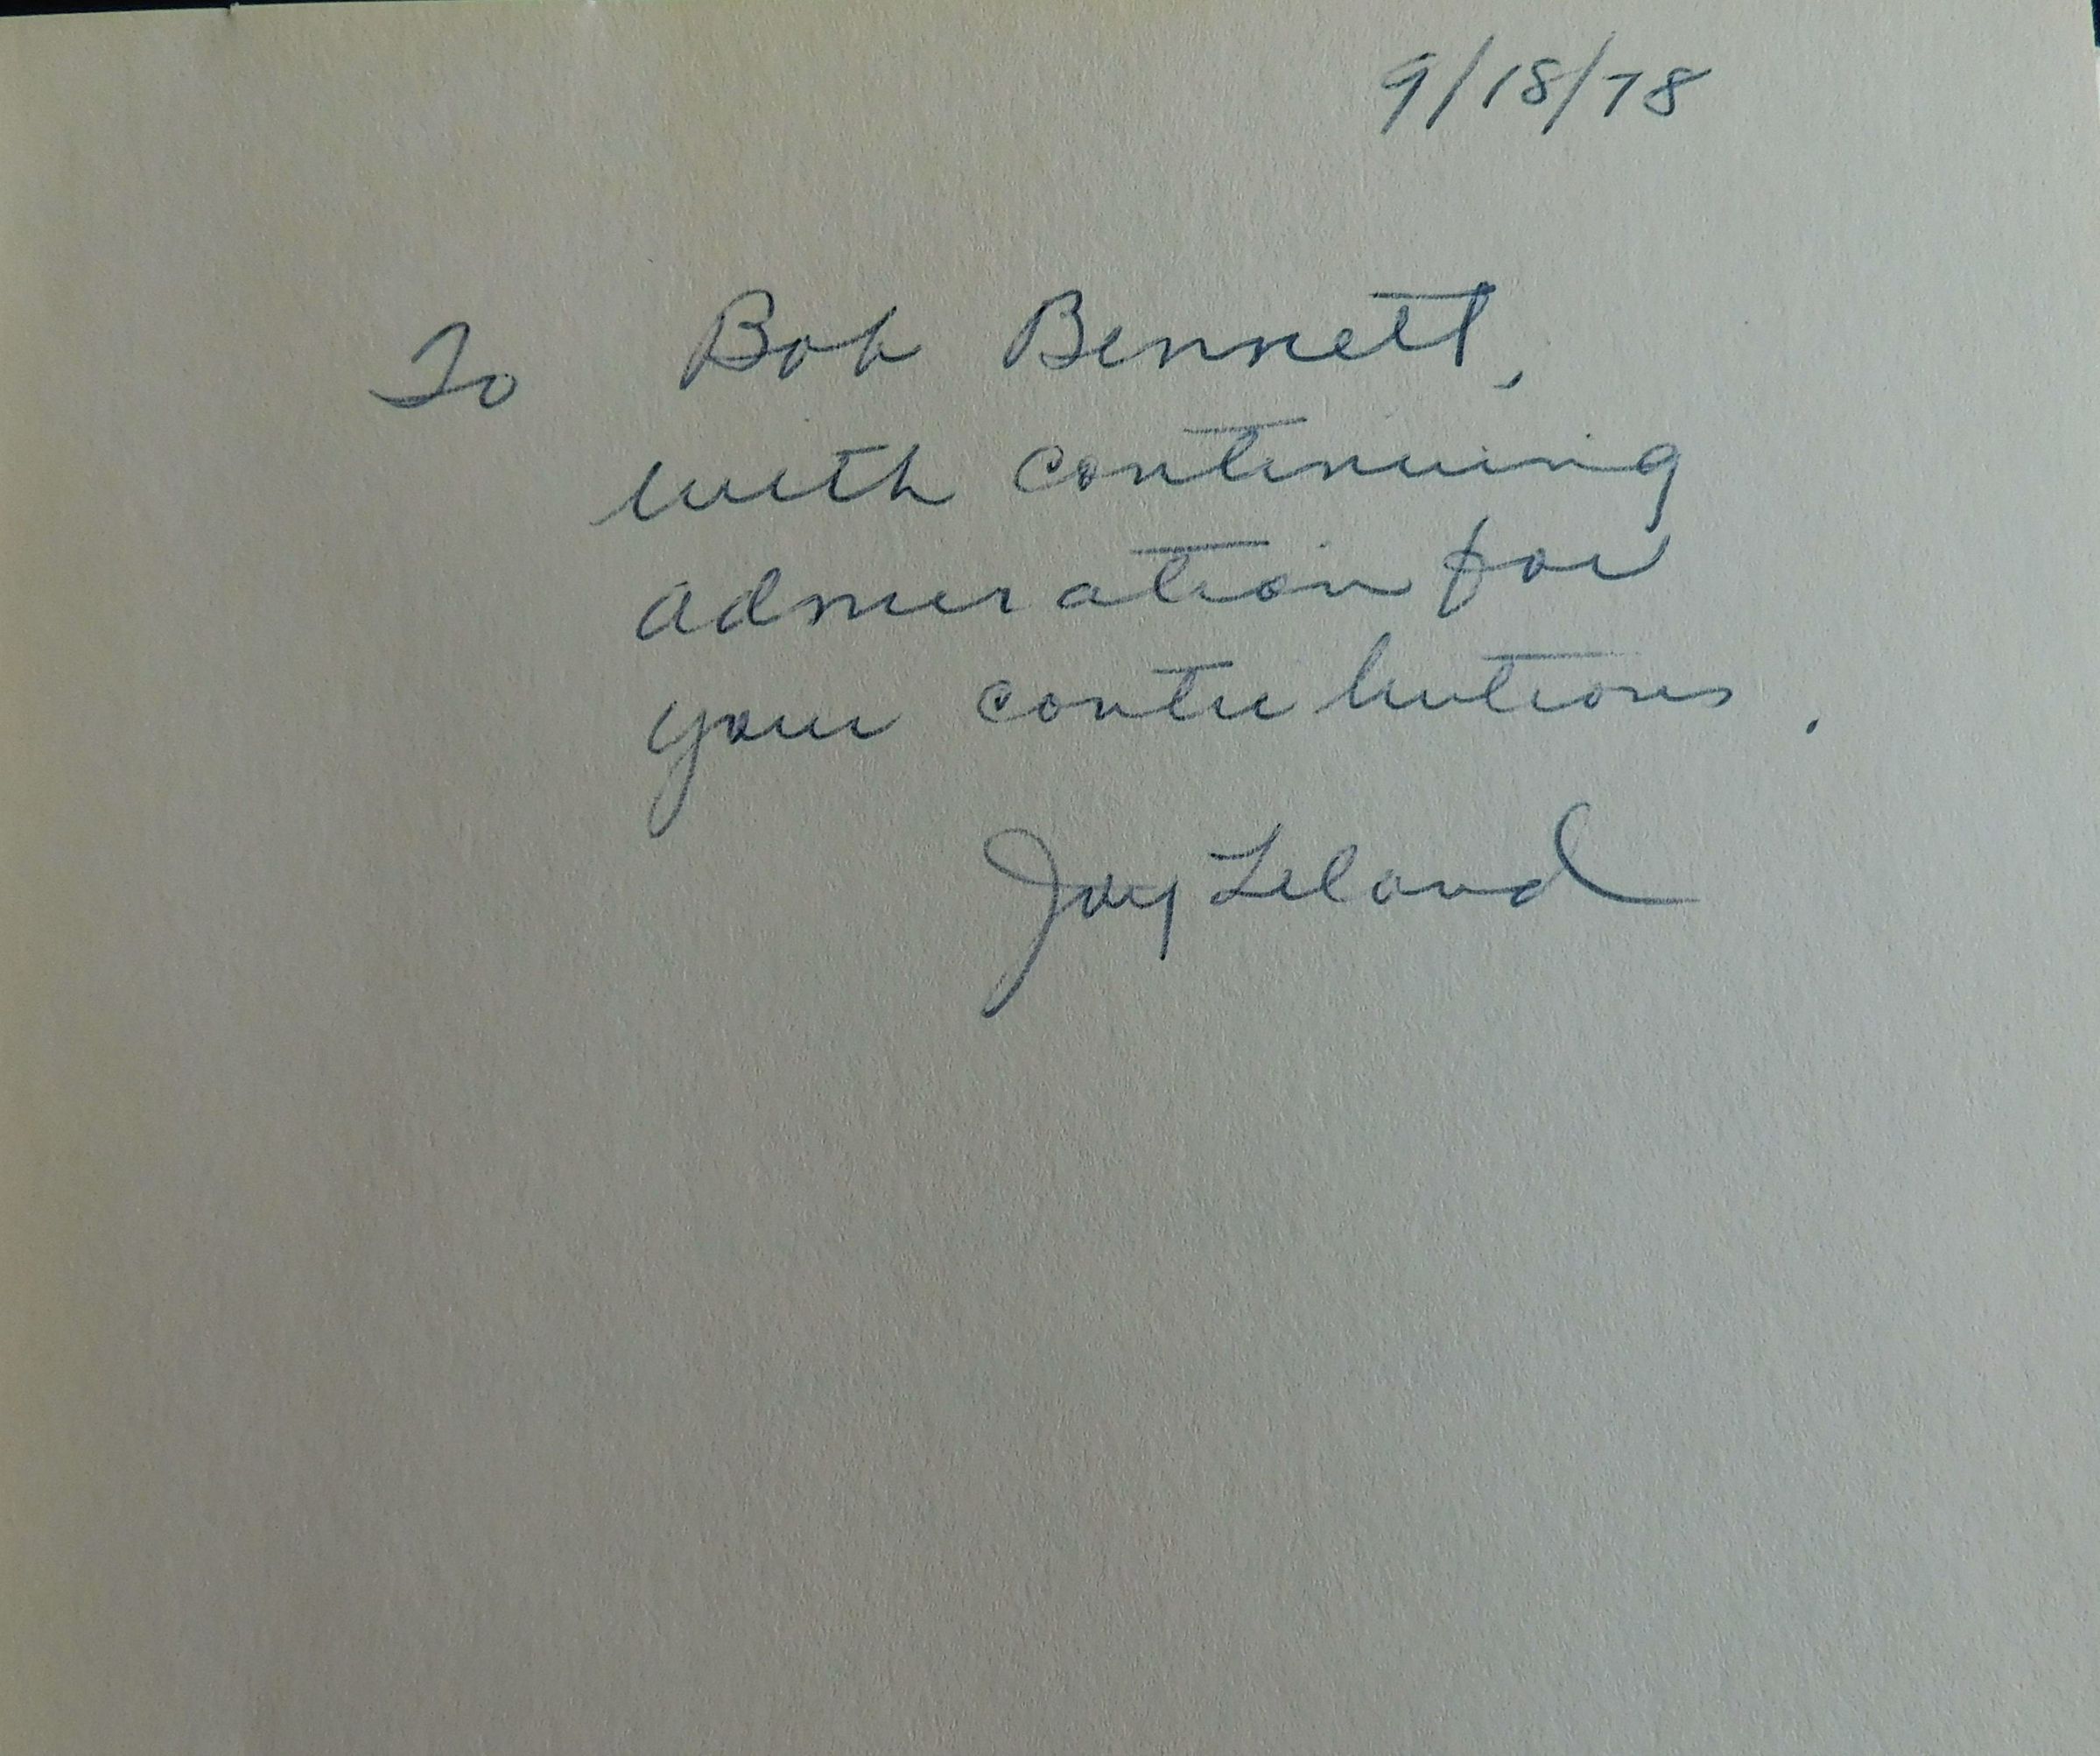 9/18/78
To Bob Bennett,
with continuing
admiration for
your contributions.
Joy Leland